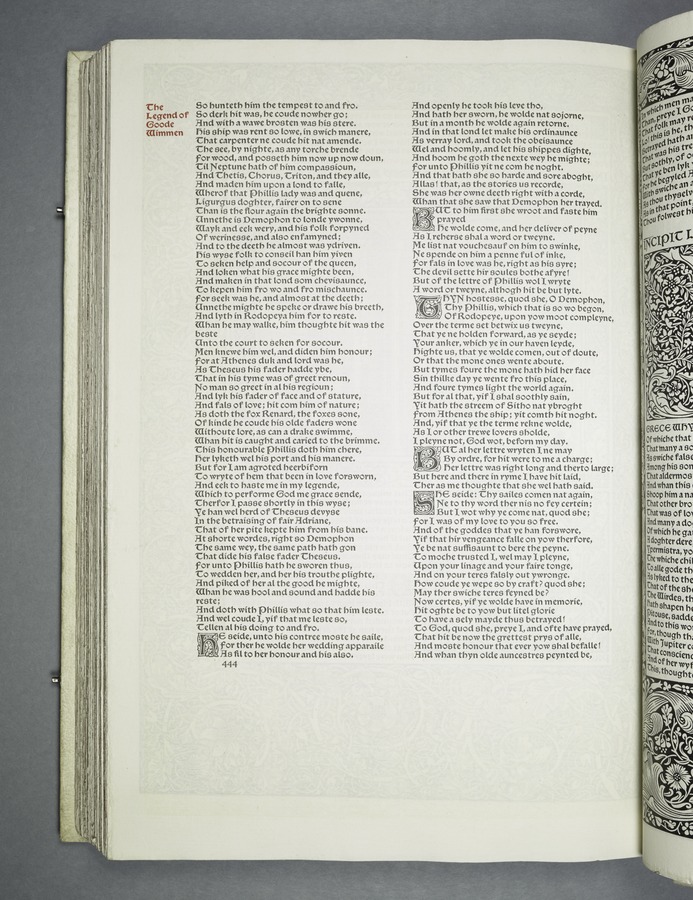 The
Legend of
Goode
Wimmen
So hunteth him the tempest to and fro.
So derk hit was, he coude nowher go;
And with a wawe brosten was his stere.
His ship was rent so lowe, in swich manere,
That carpenter ne coude hit nat amende.
The see, by nighte, as any torche brende
For wood, and posseth him now up now doun,
Til Neptune hath of him compassioun,
And Thetis, Chorus, Triton, and they alle,
And maden him upon a lond to falle,
Wherof that Phillis lady was and quene,
Ligurgus doghter, fairer on to sene
Than is the flour again the brighte sonne.
Unnethe is Demophon to londe ywonne,
Wayk and eek wery, and his folk forpyned
Of werinesse, and also enfamyned;
And to the deeth he almost was ydriven.
His wyse folk to conseil han him yiven
To seken help and socour of the queen,
And loken what his grace mighte been,
And maken in that lond som chevisaunce,
To kepen him fro wo and fro mischaunce.
For seek was he, and almost at the deeth;
Unnethe mighte he speke or drawe his breeth,
And lyth in Rodopeya him for to reste.
Whan he may walke, him thoughte hit was the
beste
Unto the court to seken for socour.
Men knewe him wel, and diden him honour;
For at Athenes duk and lord was he,
As Theseus his fader hadde ybe,
That in his tyme was of greet renoun,
No man so greet in al his regioun;
And lyk his fader of face and of stature,
And fals of love; hit com him of nature;
As doth the fox Renard, the foxes sone,
Of kinde he coude his olde faders wone
Withoute lore, as can a drake swimme,
Whan hit is caught and caried to the brimme.
This honourable Phillis doth him chere,
Her lyketh wel his port and his manere.
But for I am agroted heerbiforn
To wryte of hem that been in love forsworn,
And eek to haste me in my legende,
Which to performe God me grace sende,
Therfor I passe shortly in this wyse;
Ye han wel herd of Theseus devyse
In the betraising of fair Adriane,
That of her pite kepte him from his bane.
At shorte wordes, right so Demophon
The same wey, the same path hath gon
That dide his false fader Theseus.
For unto Phillis hath he sworen thus,
To wedden her, and her his trouthe plighte,
And piked of her al the good he mighte,
Whan he was hool and sound and hadde his
reste;
And doth with Phillis what so that him leste.
And wel coude I, yif that me leste so,
Tellen al his doing to and fro.
HE seide, unto his contree moste he saile,
For ther he wolde her wedding apparaile
As fil to her honour and his also.
444
And openly he took his leve tho,
And hath her sworn, he wolde nat sojorne,
But in a month he wolde again retorne.
And in that lond let make his ordinaunce
As verray lord, and took the obeisaunce
Wel and hoomly, and let his shippes dighte,
And hoom he goth the nexte wey he mighte;
For unto Phillis yit ne com he noght.
And that hath she so harde and sore aboght,
Allas! that, as the stories us recorde,
She was her owne deeth right with a corde,
Whan that she saw that Demophon her trayed.
BUT to him first she wroot and faste him
prayed
He wolde come, and her deliver of peyne
As I reherse shal a word or tweyne.
Me list nat vouchesauf on him to swinke,
Ne spende on him a penne ful of inke,
For fals in love was he, right as his syre;
The devil sette hir soules bothe afyre!
But of the lettre of Phillis wol I wryte
A word or tweyne, althogh hit be but lyte.
THYN hostesse, quod she, O Demophon,
Thy Phillis, which that is so wo begon,
Of Rodopeye, upon yow moot compleyne,
Over the terme set betwix us tweyne,
That ye ne holden forward, as ye seyde;
Your anker, which ye in our haven leyde,
Highte us, that ye wolde comen, out of doute,
Or that the mone ones wente aboute.
But tymes foure the mone hath hid her face
Sin thilke day ye wente fro this place,
And foure tymes light the world again.
But for al that, yif I shal soothly sain,
Yit hath the streem of Sitho nat ybroght
From Athenes the ship; yit comth hit noght.
And, yif that ye the terme rekne wolde,
As I or other trewe lovers sholde,
I pleyne not, God wot, beforn my day.
BUT al her lettre wryten I ne may
By ordre, for hit were to me a charge;
Her lettre was right long and therto large;
But here and there in ryme I have hit laid,
Ther as me thoughte that she wel hath said.
SHE seide: Thy sailes comen nat again,
Ne to thy word ther nis no fey certein;
But I wot why ye come nat, quod she;
For I was of my love to you so free.
And of the goddes that ye han forswore,
Yif hir vengeance falle on yow therfore,
Ye be nat suffisaunt to bere the peyne.
To moche trusted I, wel may I pleyne,
Upon your linage and your faire tonge,
And on your teres falsly out ywronge.
How coude ye wepe so by craft? quod she;
May ther swiche teres feyned be?
Now certes, yif ye wolde have in memorie,
Hit oghte be to yow but litel glorie
To have a sely mayde thus betrayed!
To God, quod she, preye I, and ofte have prayed,
That hit be now the grettest prys of alle,
And moste honour that ever yow shal befalle!
And whan thyn olde auncestres peynted be,